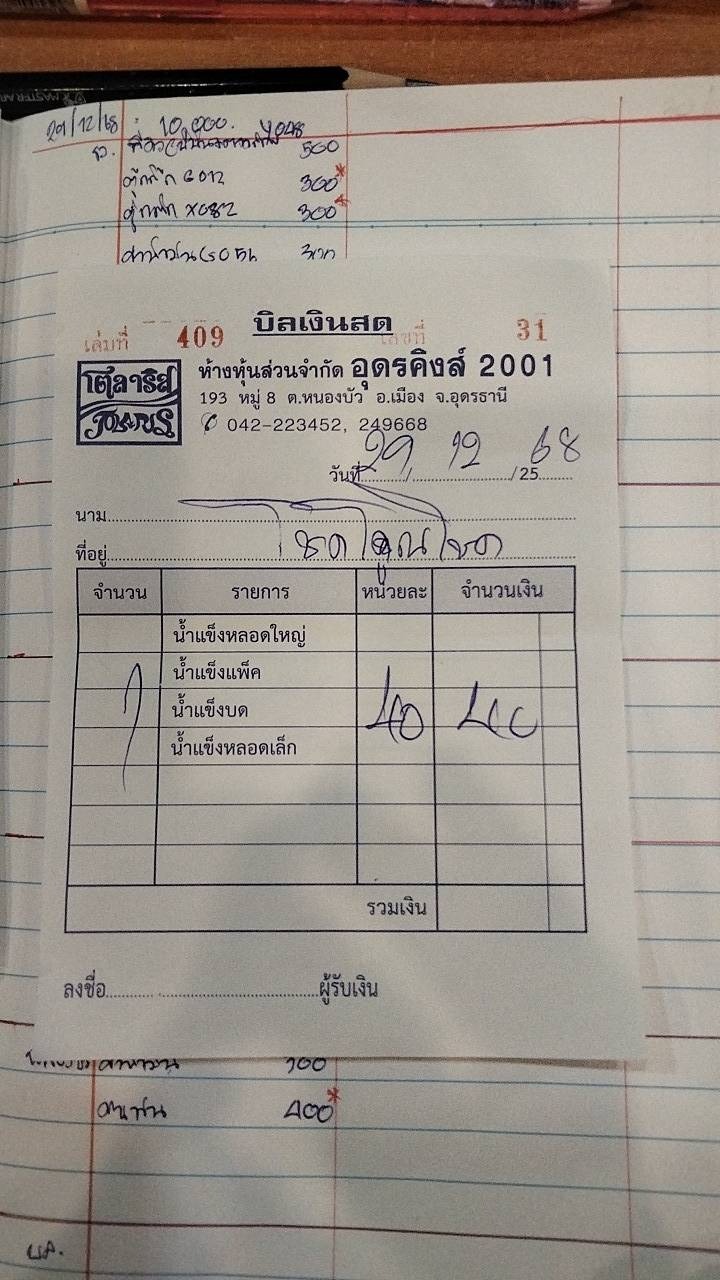 29/12/68 : 10,000.
500
300*
300*
300
บิลเงินสด
เล่มที่ 409 เลขที่ 31
โพลาริส
POLARIS
ห้างหุ้นส่วนจำกัด อุดรคิงส์ 2001
193 หมู่ 8 ต.หนองบัว อ.เมือง จ.อุดรธานี
042-223452, 249668
วันที่ 29 / 12 / 25 68
นาม
ที่อยู่
จำนวน รายการ หน่วยละ จำนวนเงิน
น้ำแข็งหลอดใหญ่
น้ำแข็งแพ็ค
1 น้ำแข็งบด 40 40
น้ำแข็งหลอดเล็ก
รวมเงิน
ลงชื่อ ผู้รับเงิน
400*